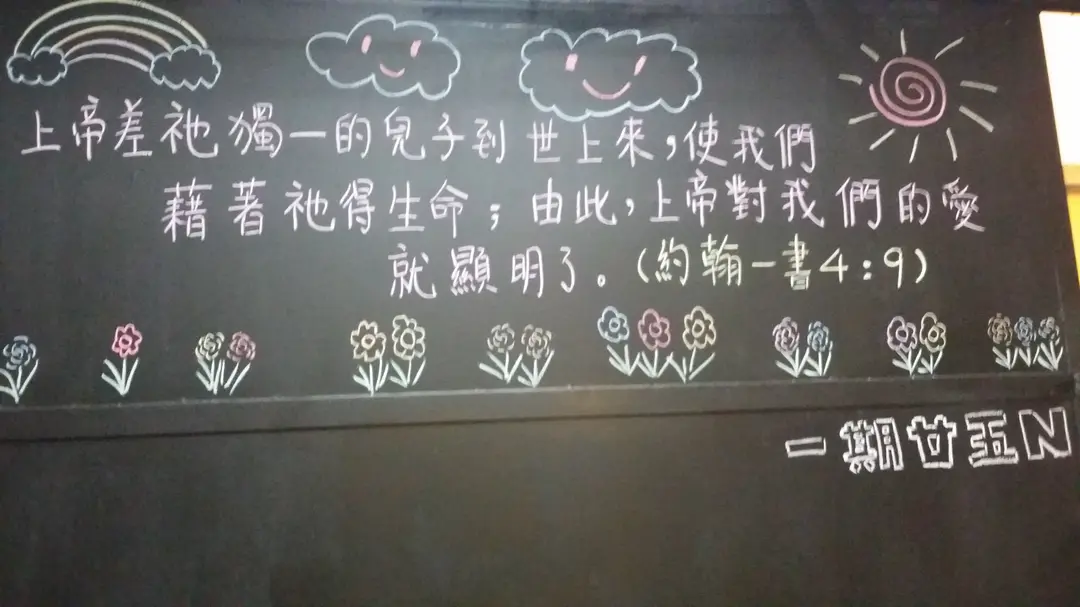 上帝差祂獨一的兒子到世上來,使我們
藉著祂得生命;由此,上帝對我們的愛
就顯明了。(約翰一書4:9)
一期廿五N